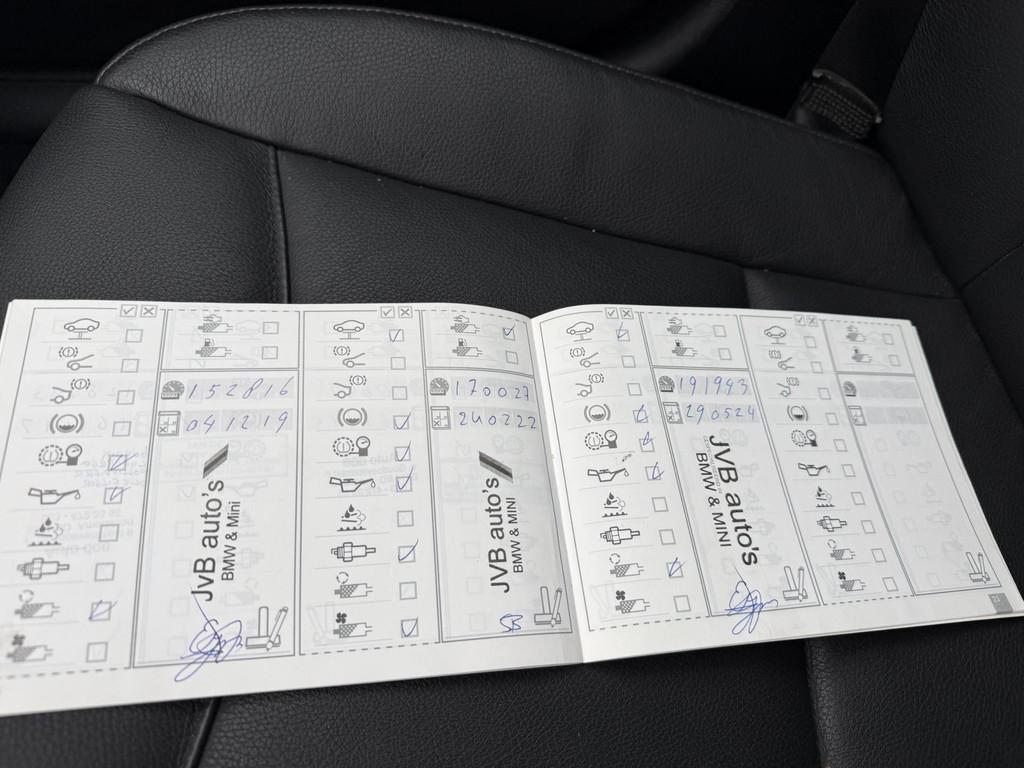 152816
041219
JvB auto's
BMW & Mini
170027
240222
JVB auto's
BMW & MINI
191993
290524
JVB auto's
BMW & MINI